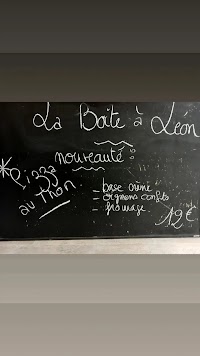 La Boite à Léon
nouveauté :
*Pizza
au Thon
- base crème
- oignons confits
- fromage
12€